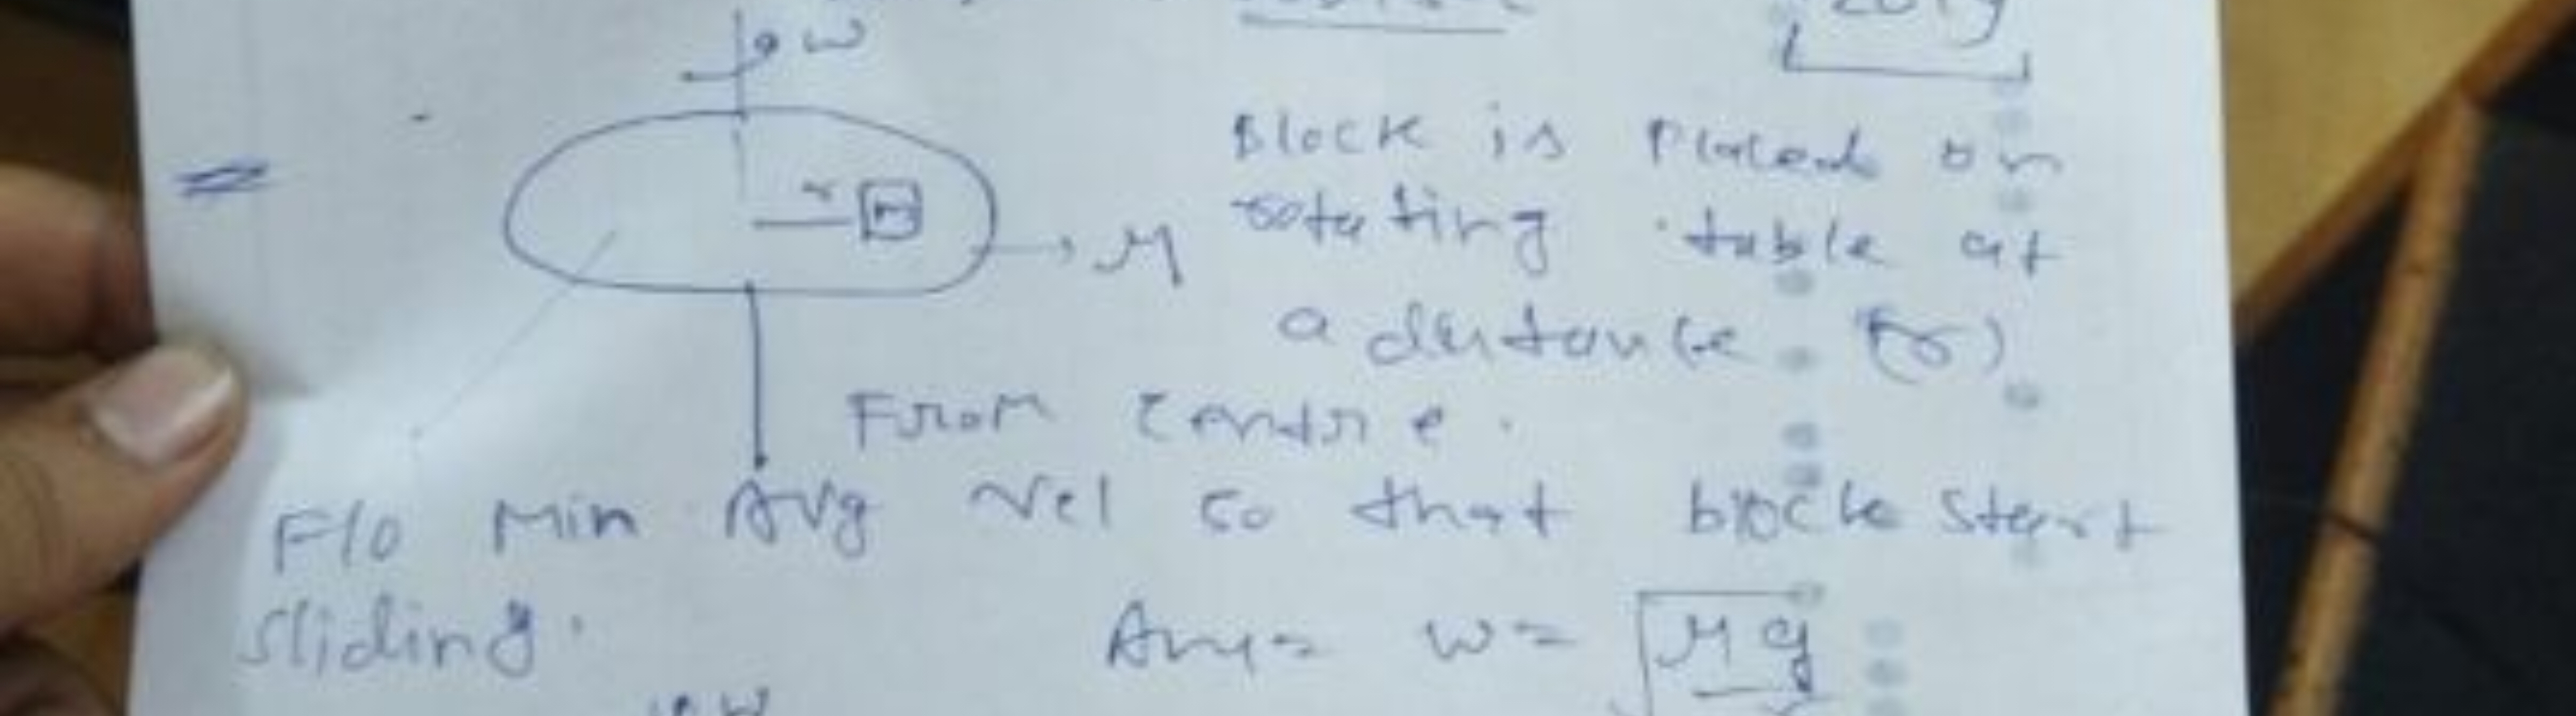 2019
ω
Block is placed on
r m
rotating table at
μ
a distance (r)
From Centre.
F/o Min Avg Vel so that block start
sliding.
Ans= w= √μg/r